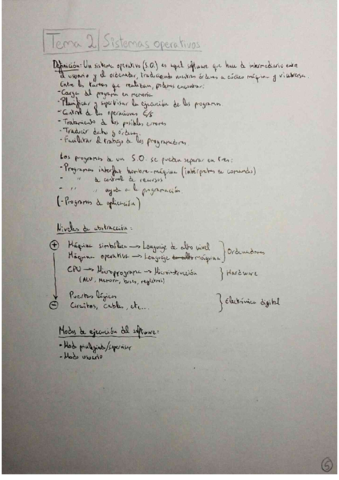 Tema 2/ Sistemas operativos
Definición: Un sistema operativo (S.O.) es aquel software que hace de intermediario entre
el usuario y el ordenador, traduciendo nuestras órdenes a código máquina y viceversa.
Entre las tareas que realizan, podemos encontrar:
- Carga del programa en memoria
- Planificar y supervisar la ejecución de los programas
- Control de las operaciones E/S
- Tratamiento de los posibles errores
- Traducir datos y órdenes
- Facilitar el trabajo de los programadores
Los programas de un S.O. se pueden separar en tres:
- Programas interfaz hombre-máquina (intérpretes de comandos)
- " de control de recursos
- " ayuda a la programación
(- Programas de aplicación)
Niveles de abstracción:
+ Máquina simbólica → Lenguaje de alto nivel
Máquina operativa → Lenguaje máquina } Ordenadores
CPU → Microprograma → Microinstrucción } Hardware
(ALU, memoria, buses, registros)
Puertas lógicas
- Circuitos, cables, etc... } Electrónica digital
Modos de ejecución del software:
- Modo privilegiado/supervisor
- Modo usuario
5